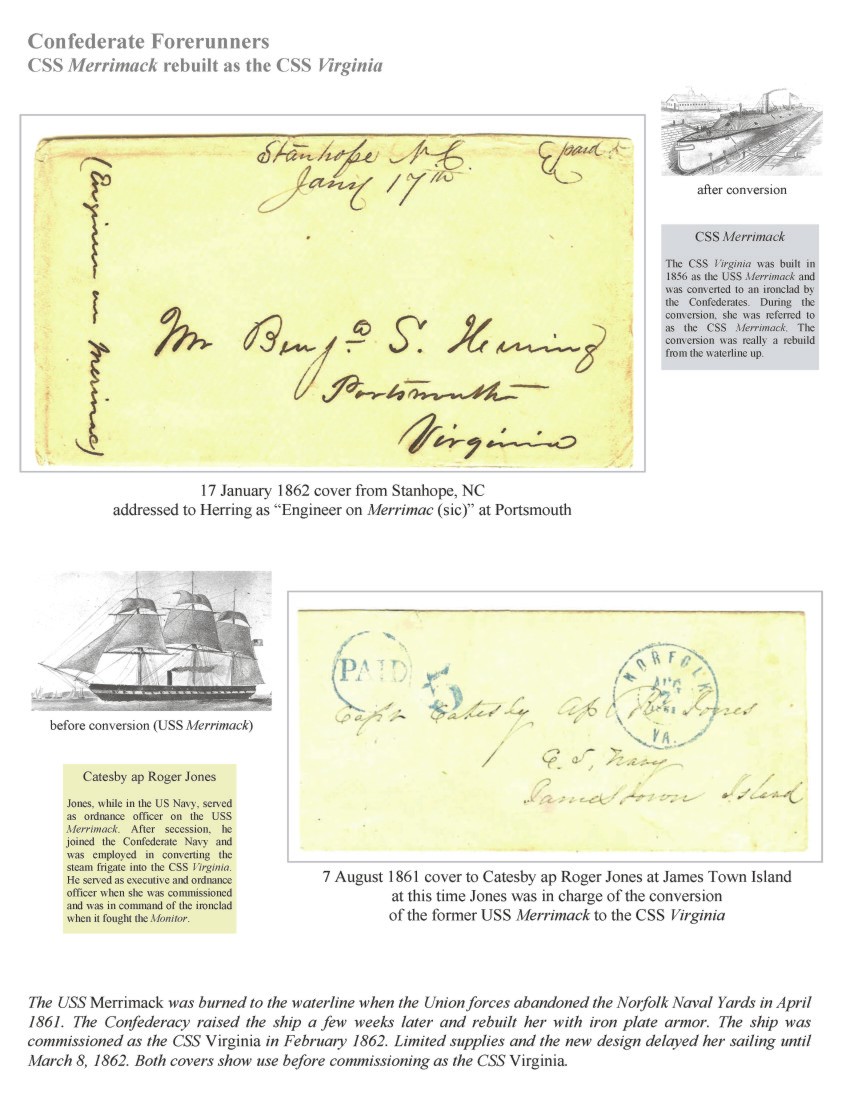 Confederate Forerunners
CSS Merrimack rebuilt as the CSS Virginia
Stanhope N.C.
Jany 17th
paid
(Engineer on Merrimac)
Mr Benja S. Herring
Portsmouth
Virginia
after conversion
CSS Merrimack
The CSS Virginia was built in
1856 as the USS Merrimack and
was converted to an ironclad by
the Confederates. During the
conversion, she was referred to
as the CSS Merrimack. The
conversion was really a rebuild
from the waterline up.
17 January 1862 cover from Stanhope, NC
addressed to Herring as “Engineer on Merrimac (sic)” at Portsmouth
before conversion (USS Merrimack)
Catesby ap Roger Jones
Jones, while in the US Navy, served
as ordnance officer on the USS
Merrimack. After secession, he
joined the Confederate Navy and
was employed in converting the
steam frigate into the CSS Virginia.
He served as executive and ordnance
officer when she was commissioned
and was in command of the ironclad
when it fought the Monitor.
PAID
5
NORFOLK
AUG
VA.
Capt Catesby Ap R Jones
C. S. Navy
Jamestown Island
7 August 1861 cover to Catesby ap Roger Jones at James Town Island
at this time Jones was in charge of the conversion
of the former USS Merrimack to the CSS Virginia
The USS Merrimack was burned to the waterline when the Union forces abandoned the Norfolk Naval Yards in April
1861. The Confederacy raised the ship a few weeks later and rebuilt her with iron plate armor. The ship was
commissioned as the CSS Virginia in February 1862. Limited supplies and the new design delayed her sailing until
March 8, 1862. Both covers show use before commissioning as the CSS Virginia.